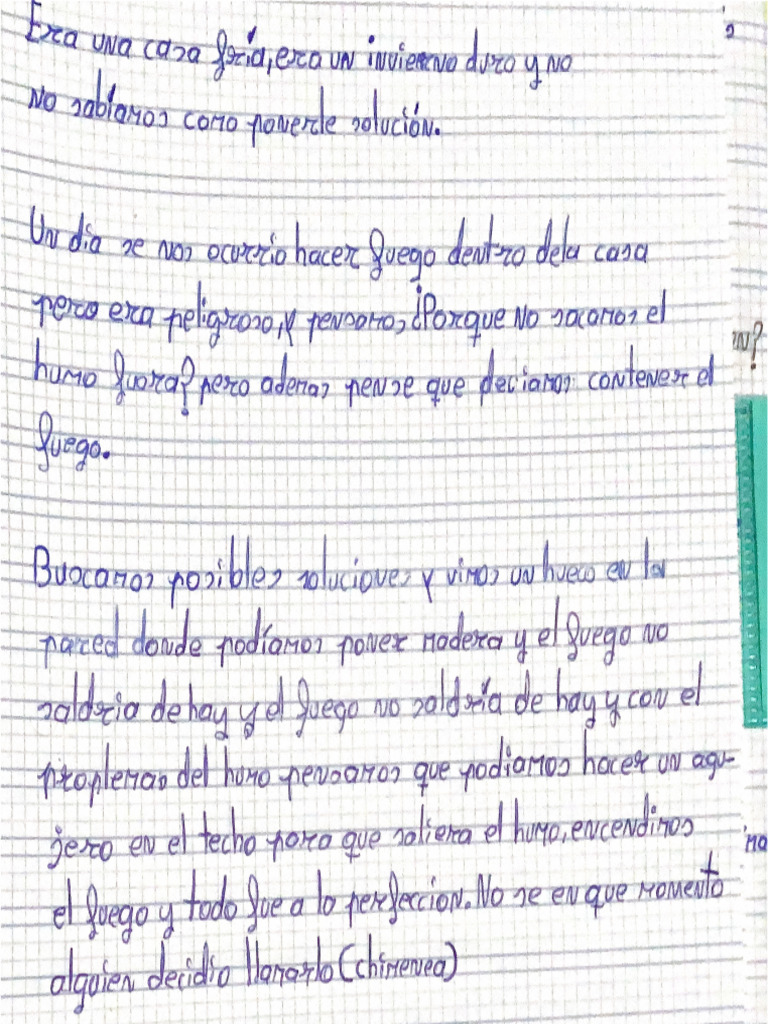 Era una casa fría, era un invierno duro y no
no sabíamos como ponerle solución.
Un día se nos ocurrio hacer fuego dentro dela casa
pero era peligroso, y pensamos ¿Porque no sacamos el
humo fuora? pero ademas pense que deciamos contener el
fuego.
Buscamos posibles soluciones y vimos un hueco en la
pared donde podíamos poner madera y el fuego no
saldria de hay y el fuego no saldría de hay y con el
proplemas del humo pensamos que podiamos hacer un agu-
jero en el techo para que saliera el humo, encendimos
el fuego y todo fue a lo perfeccion. No se en que momento
alguien decidio llamarlo (chimenea)